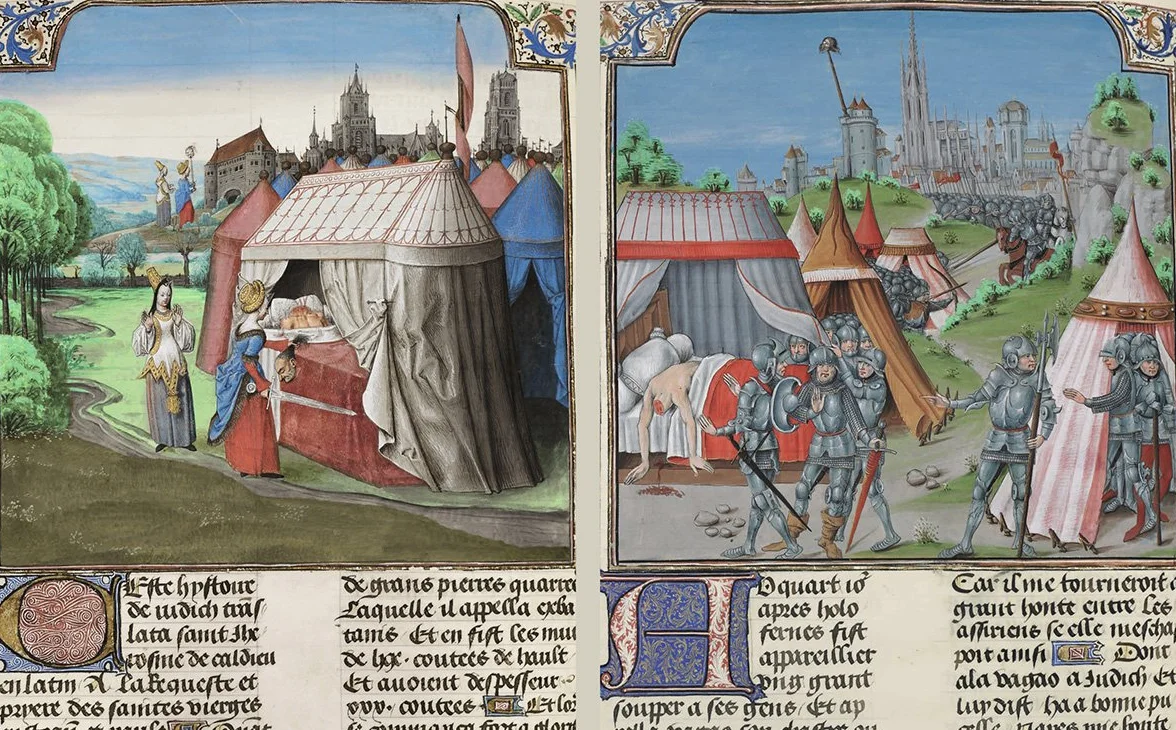 CEste hystoire
de iudich trans/
lata saint Ihe
rosme de caldieu
en latin A laRequeste et
pryere des saintes vierges
de grans pierres quarree
Laquelle il appella exba
tanis Et en fist les mur
de lxx. coutees de hault
Et auoient despesseur
xxx. coutees Et lor
se commenca fort a glori
AU quart io
apres holo
fernes fist
appareillier
vng grant
soupper a ses gens / Et ap
Car il me tourneroit a
grant honte entre Les
assiriens se elle meschap
poit ainsi Dont
ala vagao a Iudich Et
luy dist ha a bonne pu